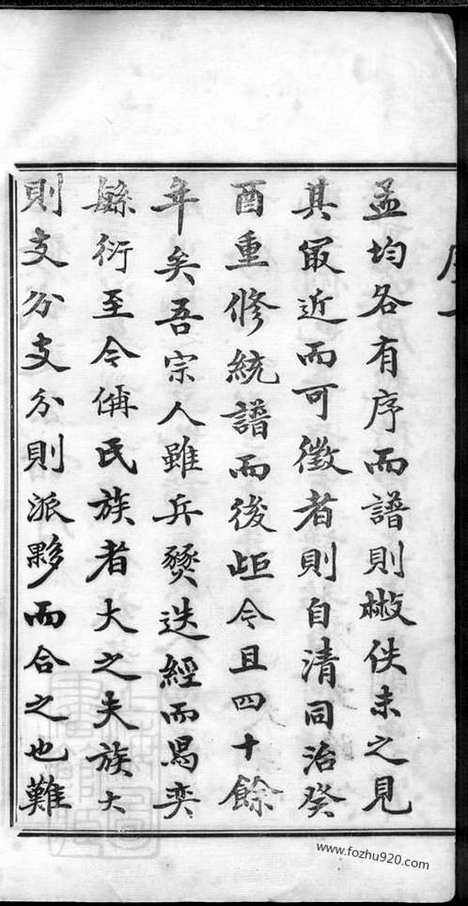 序一
孟均各有序而譜則散佚未之見
其冣近而可徵者則自清同治癸
酉重修統譜而後歫今且四十餘
年矣吾宗人雖兵燹迭經而曷奕
緐衍至今偁氏族者大之夫族大
則支分支分則派夥而合之也難
www.fozhu920.com